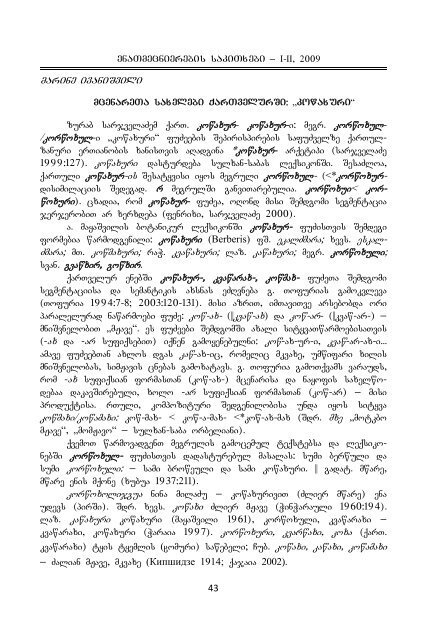 ენათმეცნიერების საკითხები – I-II, 2009
მარინე ივანიშვილი
მცენარეთა სახელები ქართველურში: „კოწახური“
ზურაბ სარჯველაძემ ქართ. კოწახურ- კოწახურ-ი; მეგრ. კორწოხულ-
/კორწოხულ-ი „კოწახური“ ფუძეების შეპირისპირების საფუძველზე ქართულ-
ზანური ერთიანობის ხანისთვის აღადგინა *კოწახურ- არქეტიპი (სარჯველაძე
1999:127). კოწახური დასტურდება სულხან-საბას ლექსიკონში. შესაძლოა,
ქართული კოწახურ-ის შესატყვისი იყოს მეგრული კორწოხულ- (<*კორწოხურ-
დისიმილაციის შედეგად. რ მეგრულში განვითარებულია. კორწოხუი< კორ-
წოხური). ცხადია, რომ კოწახურ- ფუძეა, ოღონდ მისი შემდგომი სეგმენტაცია
ჯერჯერობით არ ხერხდება (ფენრიხი, სარჯველაძე 2000).
ა. მაყაშვილის ბოტანიკურ ლექსიკონში კოწახურ- ფუძისთვის შემდეგი
ფორმებია წარმოდგენილი: კოწახური (Berberis) ფშ. ეკალძმარა; ხევს. ესკალ-
ძმარა; მთ. კოწმახური; რაჭ. კვაწახური; ლაზ. კაწახური; მეგრ. კორწოხული;
სვან. გვაწხირ, გოწხირ.
ქართველურ ენებში კოწახურ-, კვაწარახ-, კოწმახ- ფუძეთა შემდგომი
სეგმენტაციისა და სემანტიკის ახსნას ეძღვნება გ. თოფურიას გამოკვლევა
(თოფურია 1994:7-8; 2003:120-131). მისი აზრით, იმთავითვე არსებობდა ორი
პარალელურად ნაწარმოები ფუძე: კოწ-ახ- (||კვაწ-ახ) და კოწ-არ- (||კვაწ-არ-) –
მნიშვნელობით „მჟავე“. ეს ფუძეები შემდგომში ახალი სიტყვათწარმოებისათვის
(-ახ და -არ სუფიქსებით) იქნენ გამოყენებულნი: კოწ-ახ-ურ-ი, კვაწ-არ-ახ-ი...
ამავე ფუძეებთან ახლოს დგას კაწ-ახ-იც, რომელიც მკვახე, უმწიფარი ხილის
მნიშვნელობას, სიმჟავის ცნებას გამოხატავს. გ. თოფურია გამოთქვამს ვარაუდს,
რომ -ახ სუფიქსიან ფორმასთან (კოწ-ახ-) მცენარისა და ნაყოფის სახელწო-
დებაა დაკავშირებული, ხოლო -არ სუფიქსიან ფორმასთან (კოწ-არ) – მისი
პროდუქტისა. რთული, კომპოზიტური შედგენილობისა უნდა იყოს სიტყვა
კოწმახი/კოწამახი: კოწ-მახ- < კოწ-ა-მახ- <*კოწ-ახ-მახ (შდრ. მხე „მოტკბო
მჟავე“, „მომჟავო“ – სულხან-საბა ორბელიანი).
ქვემოთ წარმოვადგენთ მეგრულის გამოცემულ ტექსტებსა და ლექსიკო-
ნებში კორწოხულ- ფუძისთვის დადასტურებულ მასალას: სუმი ბერწული და
სუმი კორწოხული: – სამი ბროწეული და სამი კოწახური. || გადატ. მწარე,
მწარე ენის მქონე (ხუბუა 1937:211).
ნინა მილაძუ – კოწახურივით (ძლიერ მწარე) ენა
უდევს (პირში). შდრ. ხევს. კოწახი ძლიერ მჟავე (ჭინჭარაული 1960:194).
ლაზ. კაწახური კოწახური (მაყაშვილი 1961), კორწოხული, კვაწარახი –
კვაწარახი, კოწახური (ქარაია 1997). კორწოხური, კვარწახი, კოხა (ქართ.
კვაწარახი) ტყის ტყემლის (ყომური) საწებელი; ჩუბ. კოწახი, კაწახი, კოწამახი
– ძალიან მჟავე, მკვახე (Кипшидзе 1914; ქაჯაია 2002).
43